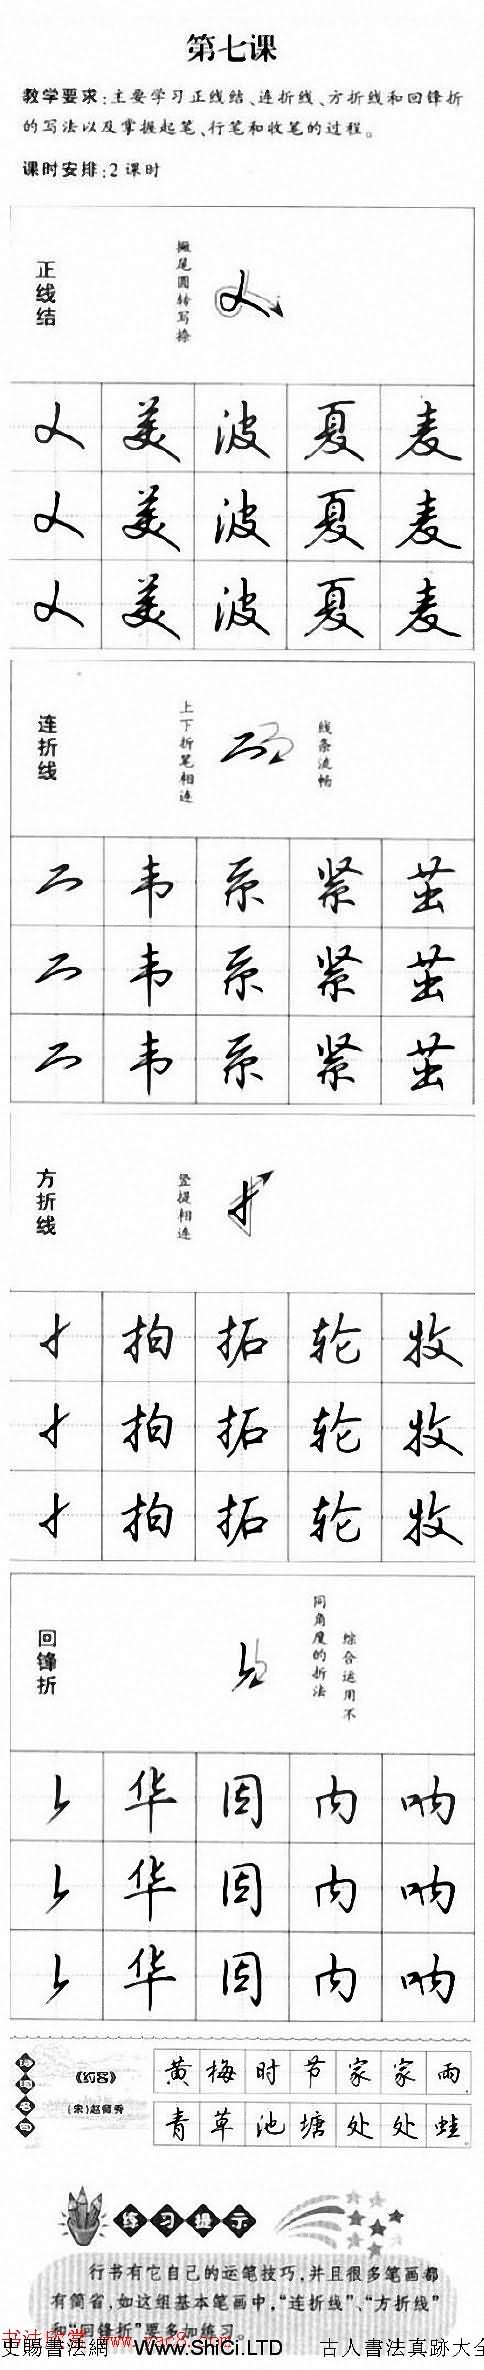 第七课
教学要求:主要学习正线结、连折线、方折线和回锋折
的写法以及掌握起笔、行笔和收笔的过程。
课时安排:2课时
正线结
撇尾圆转写捺
美 波 夏 麦
美 波 夏 麦
美 波 夏 麦
连折线
上下折笔相连
线条流畅
韦 系 紧 茧
韦 系 紧 茧
韦 系 紧 茧
方折线
竖提相连
扌 拍 拓 轮 牧
扌 拍 拓 轮 牧
扌 拍 拓 轮 牧
回锋折
综合运用不
同角度的折法
华 因 内 呐
华 因 内 呐
华 因 内 呐
诗词名句
《约客》
(宋)赵师秀
黄梅时节家家雨
青草池塘处处蛙
练习提示
行书有它自己的运笔技巧,并且很多笔画都
有简省,如这组基本笔画中,“连折线”、“方折线”
和“回锋折”要多加练习。
书法欣赏 www.yac8.com
史賜書法網 www.ShiCi.LTD 古人書法真跡大全